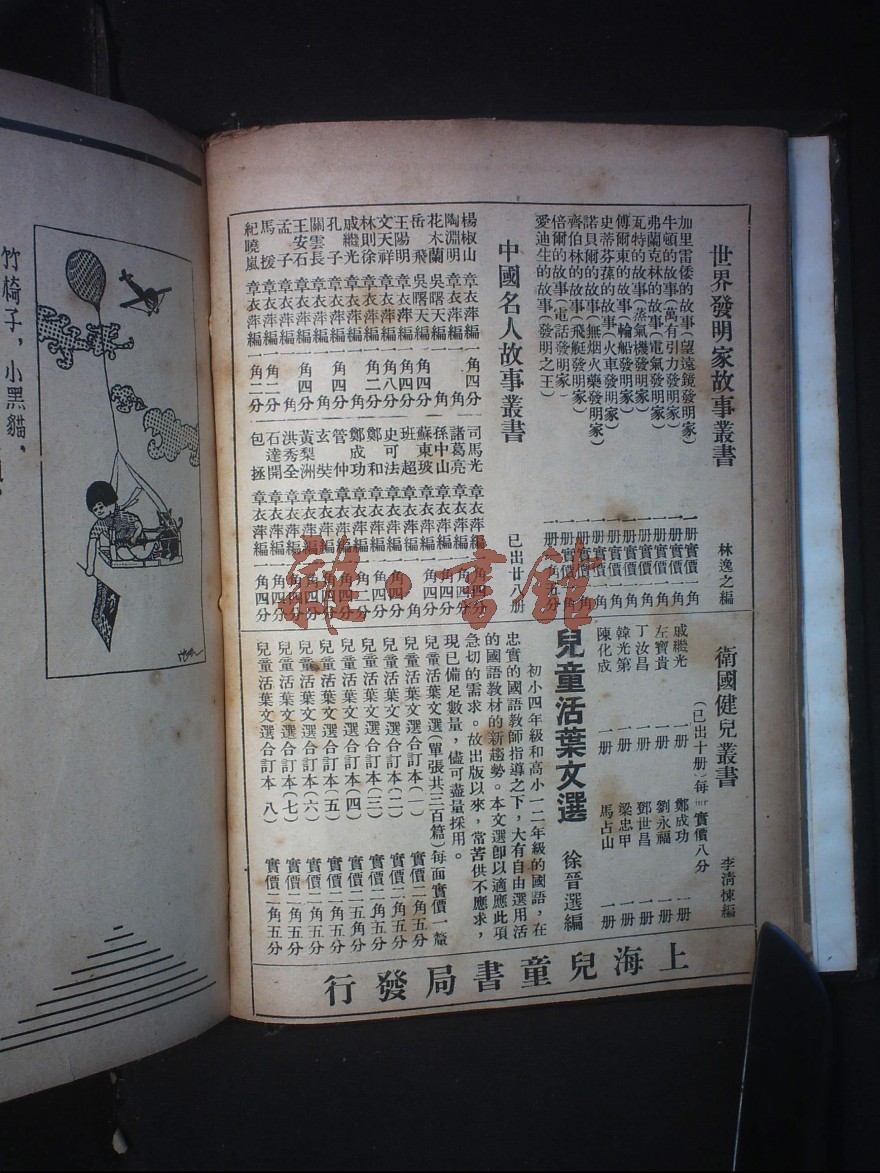 世界發明家故事叢書
林逸之編
加里雷倭的故事(望遠鏡發明家) 一册實價一角
牛頓的故事(萬有引力發明家) 一册實價一角
弗蘭克林的故事(電氣發明家) 一册實價一角
瓦特的故事(蒸氣機發明家) 一册實價一角
傅爾東的故事(輪船發明家) 一册實價一角
史蒂芬蓀的故事(火車發明家) 一册實價一角
諾貝爾的故事(無烟火藥發明家)
齊伯林的故事(飛艇發明家)
倍爾的故事(電話發明家)
愛迪生的故事(發明之王)
中國名人故事叢書
已出廿八册
楊椒山 章衣萍編 一角四分
陶淵明 章衣萍編 一角
花木蘭 吳曙天編 一角
岳飛 吳曙天編 一角四分
王陽明 章衣萍編 一角四分
文天祥 章衣萍編 一角八分
林則徐 章衣萍編 一角二分
戚繼光 章衣萍編 一角
孔子 章衣萍編 一角四分
關雲長 章衣萍編 一角
王安石 章衣萍編 一角四分
孟子 章衣萍編 一角
馬援 章衣萍編 一角二分
紀曉嵐 章衣萍編 一角二分
司馬光 章衣萍編
諸葛亮 章衣萍編
孫中山 章衣萍編
蘇東坡 章衣萍編
班超 章衣萍編
史可法 章衣萍編
鄭和 章衣萍編
鄭成功 章衣萍編
管仲 章衣萍編
玄奘 章衣萍編
黃梨洲 章衣萍編
洪秀全 章衣萍編
石達開 章衣萍編
包拯 章衣萍編 一角四分
衛國健兒叢書
(已出十册)每册實價八分
李清悚編
戚繼光 一册 鄭成功 一册
左寶貴 一册 劉永福 一册
丁汝昌 一册 鄧世昌 一册
韓光第 一册 梁忠甲 一册
陳化成 一册 馬占山 一册
兒童活葉文選
徐晉選編
初小四年級和高小一二年級的國語,在
忠實的國語教師指導之下,大有自由選用活
的國語教材的新趨勢。本文選卽以適應此項
急切的需求。故出版以來,常苦供不應求,
現已備足數量,儘可盡量採用。
兒童活葉文選(單張共三百篇)每面實價一釐
兒童活葉文選合訂本(一) 實價二角五分
兒童活葉文選合訂本(二) 實價二角五分
兒童活葉文選合訂本(三) 實價二角五分
兒童活葉文選合訂本(四) 實價二角五分
兒童活葉文選合訂本(五) 實價二角五分
兒童活葉文選合訂本(六) 實價二角五分
兒童活葉文選合訂本(七) 實價二角五分
兒童活葉文選合訂本(八) 實價二角五分
上海兒童書局發行
竹椅子,小黑貓,
雜·書館